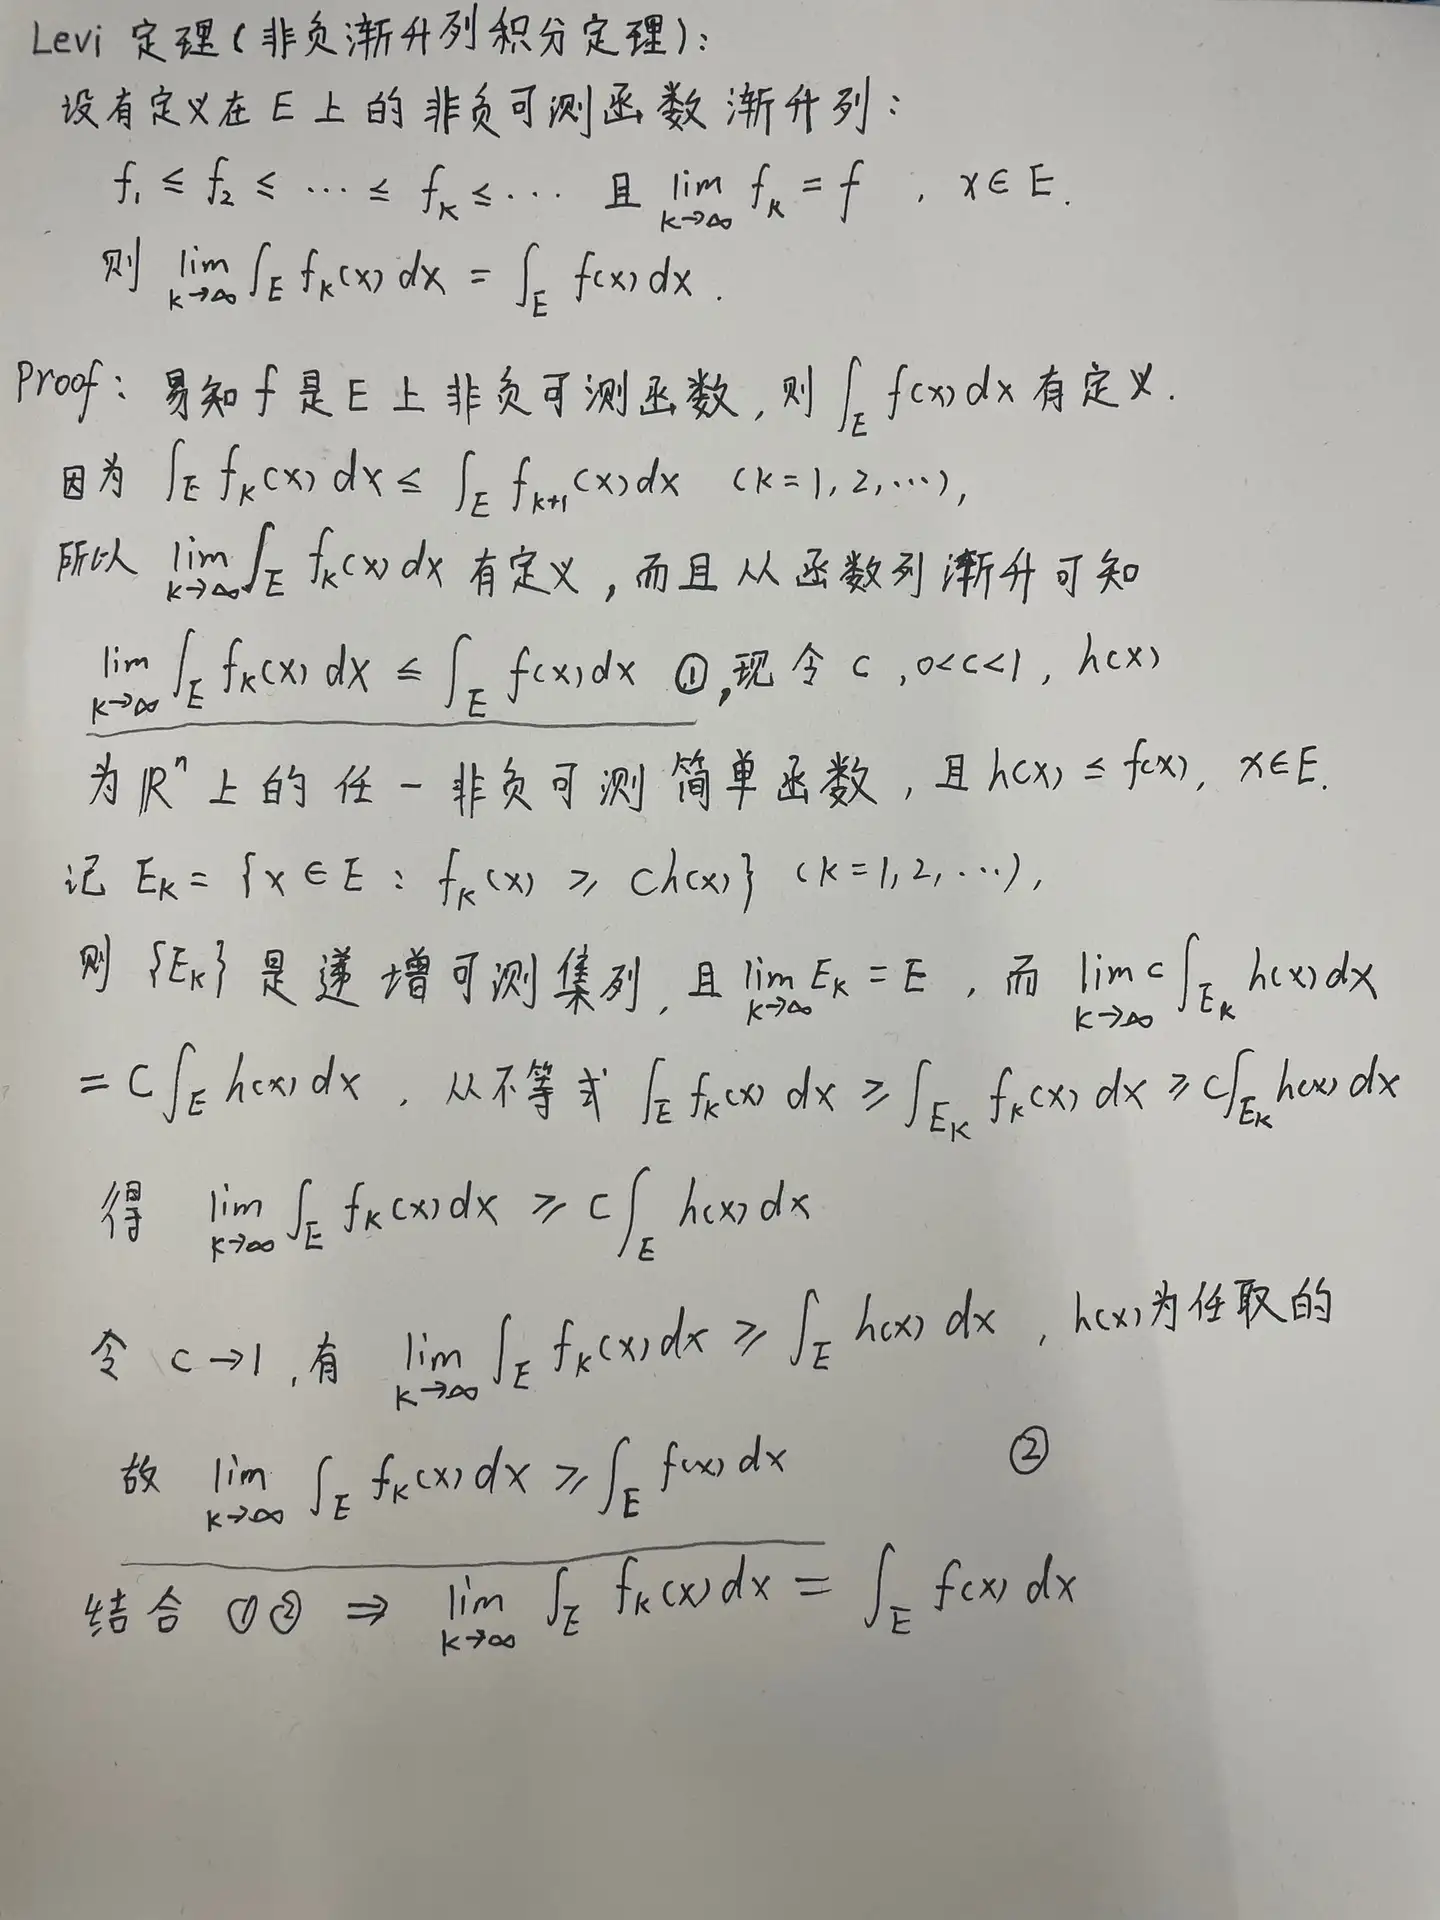 Levi 定理(非负渐升列积分定理):
设有定义在 E 上的非负可测函数渐升列:
f₁ ≤ f₂ ≤ ⋯ ≤ f_k ≤ ⋯ 且 lim_{k→∞} f_k = f , x∈E.
则 lim_{k→∞} ∫_E f_k(x) dx = ∫_E f(x) dx .
Proof: 易知 f 是 E 上非负可测函数, 则 ∫_E f(x) dx 有定义.
因为 ∫_E f_k(x) dx ≤ ∫_E f_{k+1}(x) dx (k=1,2,⋯),
所以 lim_{k→∞} ∫_E f_k(x) dx 有定义, 而且从函数列渐升可知
lim_{k→∞} ∫_E f_k(x) dx ≤ ∫_E f(x) dx ①, 现令 c , 0<c<1, h(x)
为 ℝⁿ 上的任一非负可测简单函数, 且 h(x) ≤ f(x), x∈E.
记 E_k = {x∈E : f_k(x) ≥ ch(x)} (k=1,2,⋯),
则 {E_k} 是递增可测集列, 且 lim_{k→∞} E_k = E , 而 lim_{k→∞} c∫_{E_k} h(x) dx
= C∫_E h(x) dx , 从不等式 ∫_E f_k(x) dx ≥ ∫_{E_k} f_k(x) dx ≥ c∫_{E_k} h(x) dx
得 lim_{k→∞} ∫_E f_k(x) dx ≥ c∫_E h(x) dx
令 c→1, 有 lim_{k→∞} ∫_E f_k(x) dx ≥ ∫_E h(x) dx , h(x)为任取的
故 lim_{k→∞} ∫_E f_k(x) dx ≥ ∫_E f(x) dx ②
结合 ①② ⇒ lim_{k→∞} ∫_E f_k(x) dx = ∫_E f(x) dx